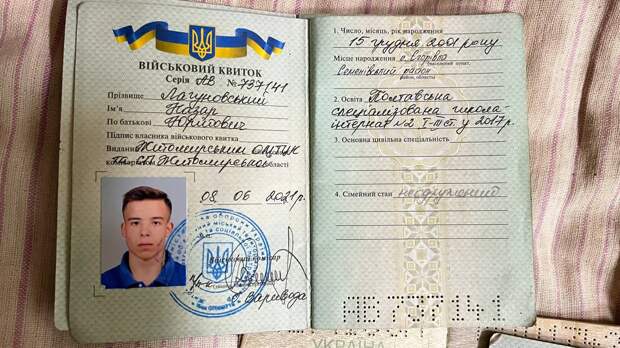 ВІЙСЬКОВИЙ КВИТОК
Серія АВ № 737141
Прізвище Лагуновський
Ім'я Назар
По батькові Юрійович
Підпис власника військового квитка
Виданий Житомирським ОМТЦК
та СП Житомирської області
08 06 2021 р.
Військовий комісар
О. Варивода
1. Число, місяць, рік народження
15 грудня 2001 року
Місце народження с. Єгорівка
Семенівський район
2. Освіта Полтавська
спеціалізована школа-
інтернат №2 І-ІІІ ст. у 2017 р.
3. Основна цивільна спеціальність
4. Сімейний стан неодружений
АВ 737141
УКРАЇНА